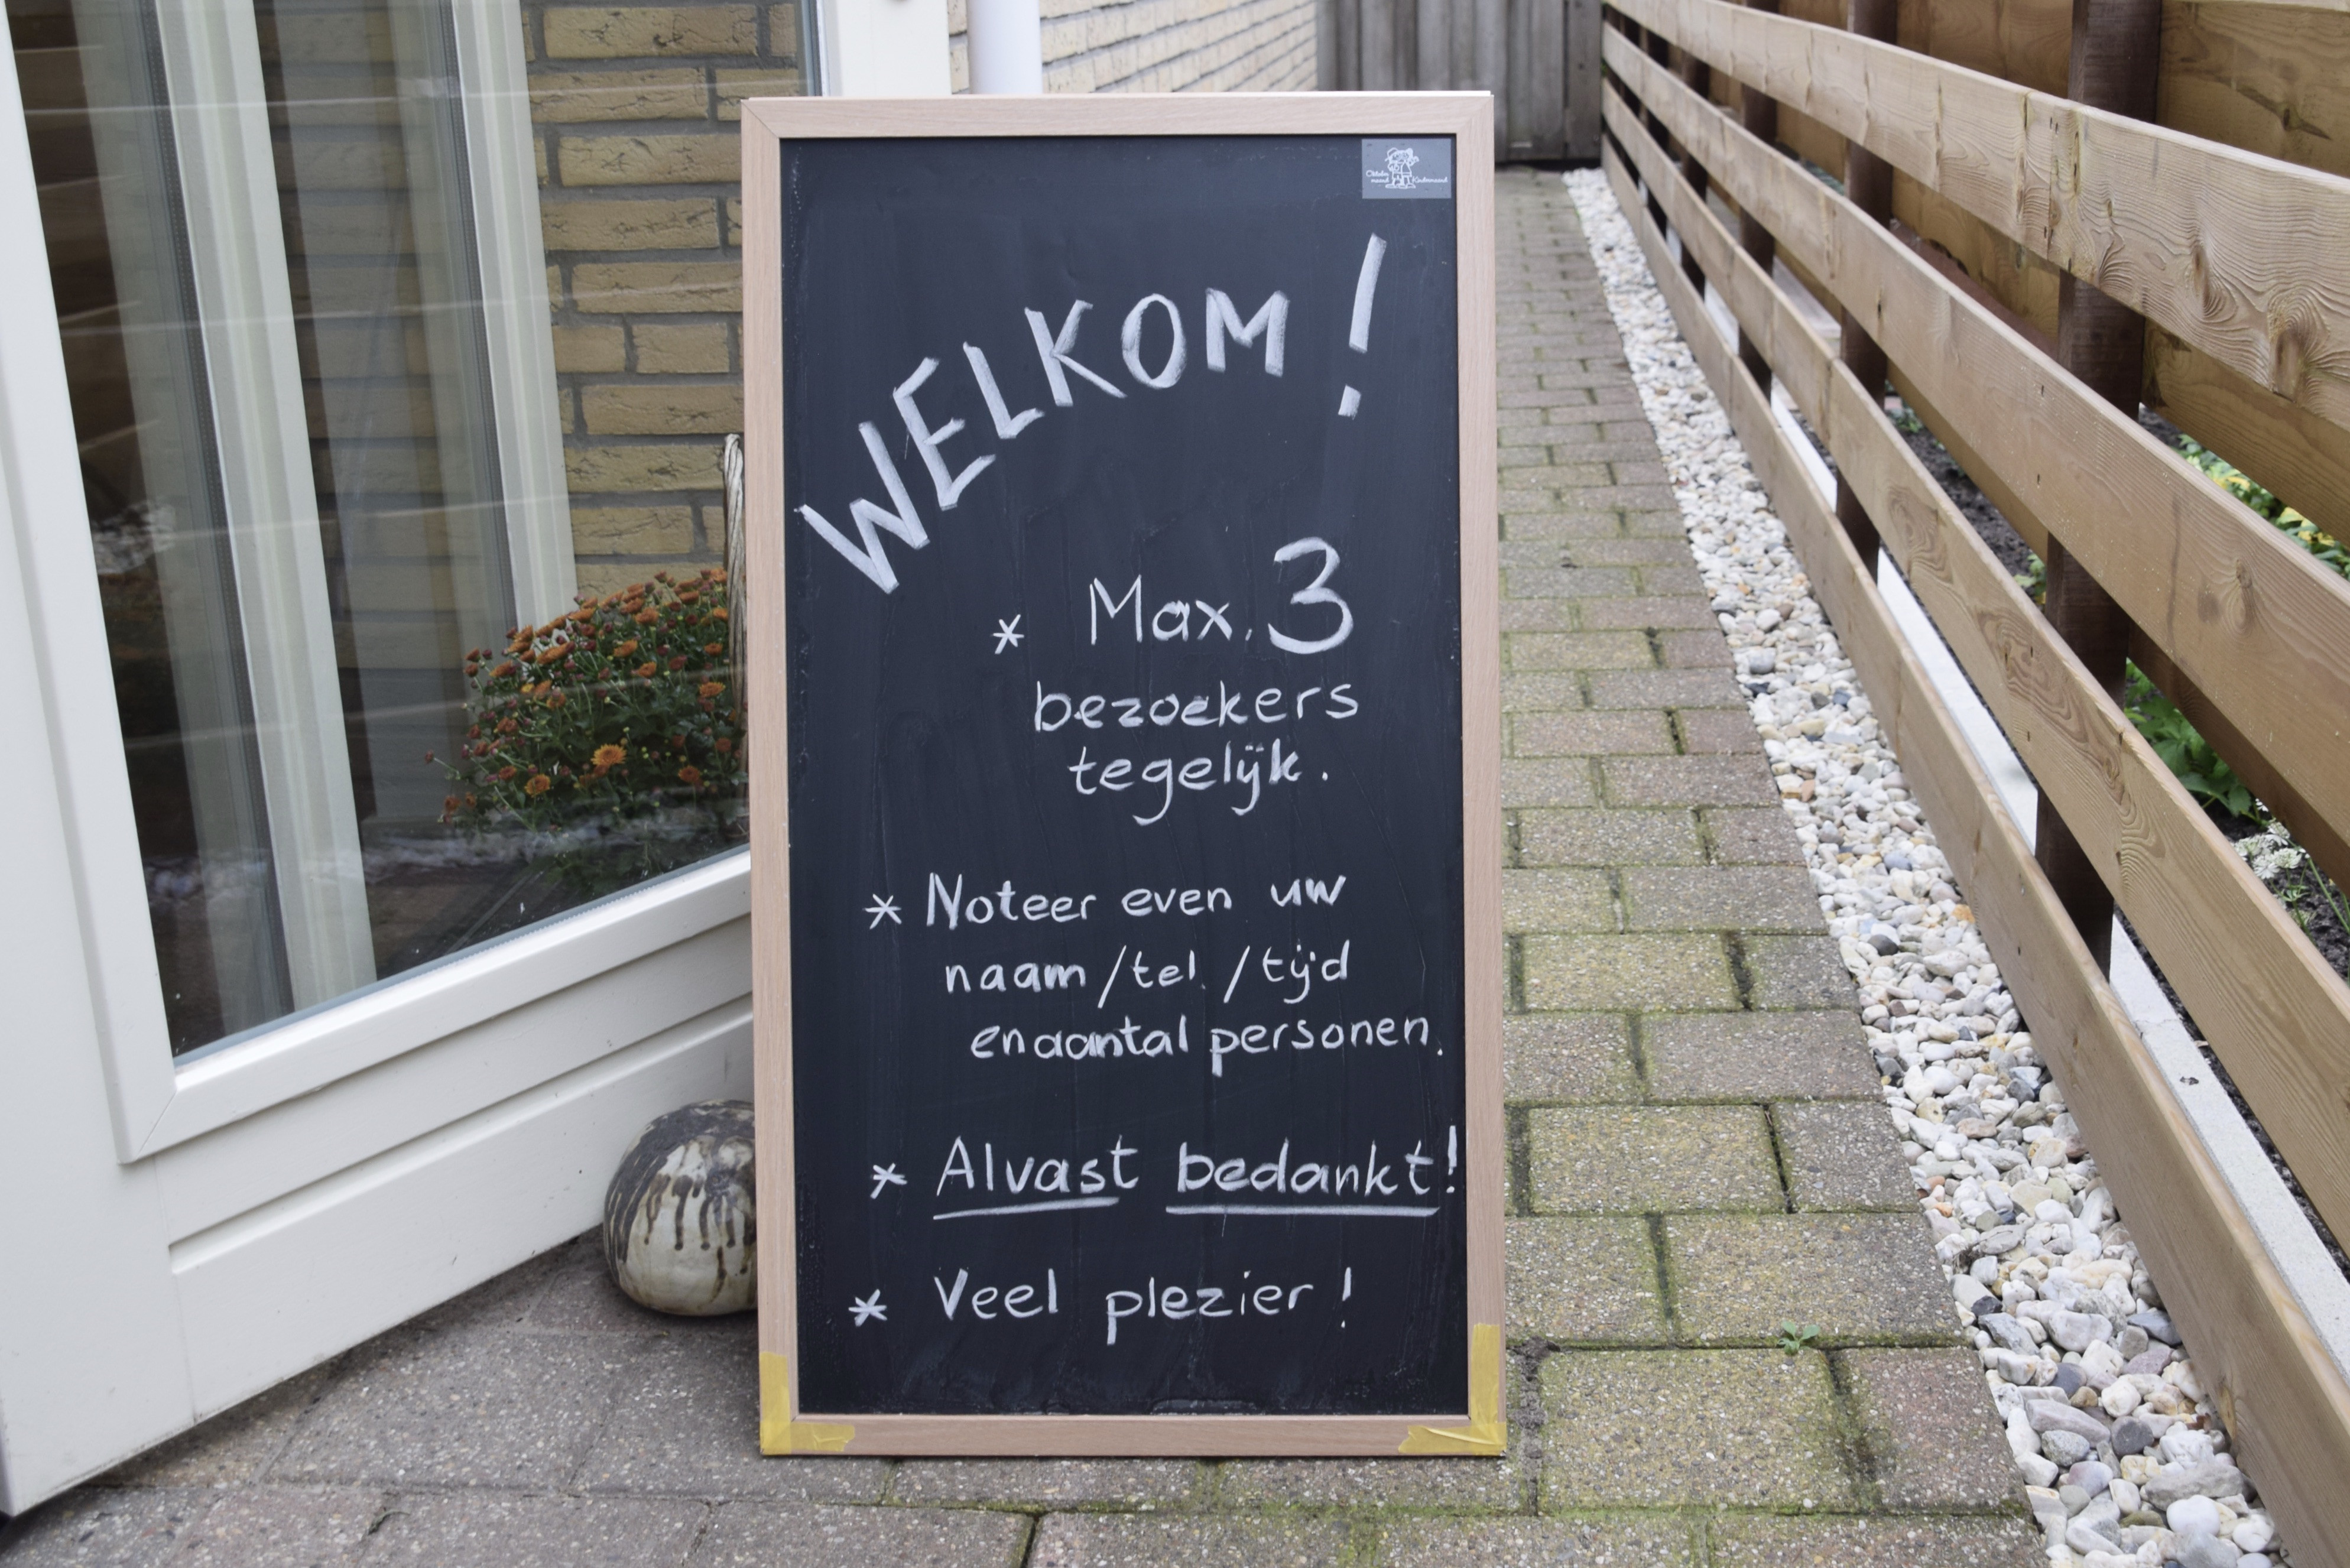 WELKOM!
* Max. 3
bezoekers
tegelijk.
* Noteer even uw
naam/tel./tijd
en aantal personen.
* Alvast bedankt!
* Veel plezier!